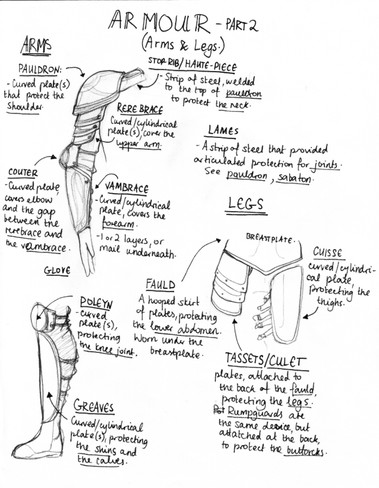 ARMOUR - PART 2
(Arms & Legs.)
ARMS
PAULDRON:
- Curved plate(s)
that protect the
shoulder.
STOP RIB/HAUTE-PIECE
- Strip of steel, welded
to the top of pauldron
to protect the neck.
REREBRACE
Curved/cylindrical
plate(s), cover the
upper arm.
LAMES
- A strip of steel that provided
articulated protection for joints.
See pauldron, sabaton.
COUTER
- Curved plate,
covers elbow
and the gap
between the
rerebrace and
the vambrace.
VAMBRACE
- Curved/cylindrical
plate, covers the
forearm.
- 1 or 2 layers, or
mail underneath.
GLOVE
LEGS
BREASTPLATE.
CUISSE
curved/cylindri-
cal plate,
protecting the
thighs.
FAULD
A hooped skirt
of plates, protecting
the lower abdomen.
Worn under the
breastplate.
POLEYN
- curved
plate(s),
protecting
the knee joint.
TASSETS/CULET
plates, attached to
the back of the fauld,
protecting the legs.
Rumpguards are
the same device, but
attatched at the back,
to protect the buttocks.
GREAVES
Curved/cylindrical
plate(s), protecting
the shins and
the calves.